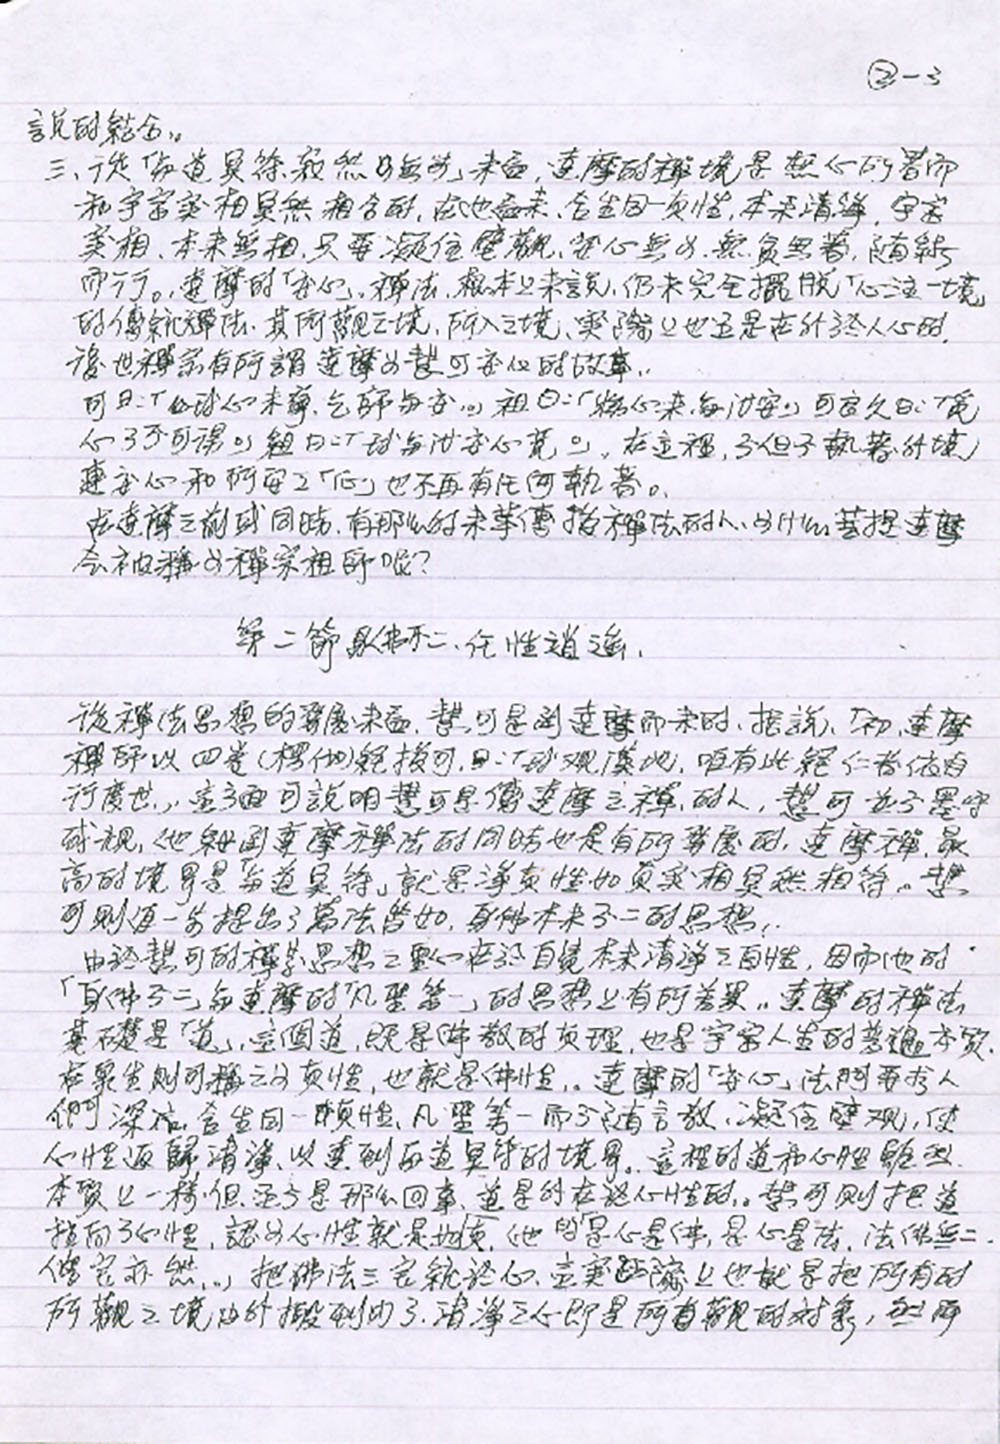 ②-3
說的結合。
三、從「與道冥符,寂然無為」來看,達摩的禪境是無心所著而
和宇宙實相冥然相合的,在他看來,含生同一真性,本來清淨,宇宙
實相,本來無相,只要凝住壁觀,安心無為,無貪無著,隨緣
而行。達摩的「安心」禪法,根本上來說,仍未完全擺脫「心注一境」
的傳統禪法,其所觀之境,所入之境,實際上也正是在外於人心的,
後世禪宗有所謂達摩為慧可安心的故事。
可曰:「我心未寧,乞師與安。」祖曰:「將心來,與汝安。」可良久曰:「覓
心了不可得。」祖曰:「我與汝安心竟。」在這裡,不但不執著外境,
連安心和所安之「心」也不再有任何執著。
在達摩之前或同時,有那么的來華傳授禪法的人,為什么菩提達摩
會被稱為禪宗祖師呢?
第二節 身佛不二、任性逍遙、
從禪法思想的發展來看,慧可是因達摩而來的,據說,「初,達摩
禪師以四卷《楞伽》經授可,曰:「我观漢地,唯有此經,仁者依自
行度世」,這方面可說明慧可是傳達摩之禪的人,慧可並不墨守
成規,他繼承達摩禪法的同時也是有所發展的,達摩禪最
高的境界是「與道冥符」就是淨真性與真實相冥然相符。慧
可則進一步提出了萬法皆如,身佛本來不二的思想。
由於慧可的禪學思想之重心在於自覺本來清淨之自性,因而他的
「身佛不二」與達摩的「凡聖等一」的思想上有所差異。達摩的禪法
基礎是「道」,這個道,既是佛教的真理,也是宇宙人生的普遍本質,
在眾生則可稱之為真性,也就是佛性。達摩的「安心」法門要求人
們深信含生同一真性,凡聖等一而不隨言教,凝住壁观,使
心性返歸清淨,以達到與道冥符的境界。這裡的道和心性雖然
本質上一樣,但還不是那么回事,道是外在於心性的。慧可則把道
指向了心性,認為心性就是道,他的「是心是佛,是心是法,法佛無二,
僧寶亦然」,把佛法三寶統於心,這實際上也就是把所有的
所觀之境由外搬到內了,清淨之心即是所有觀的对象,無所